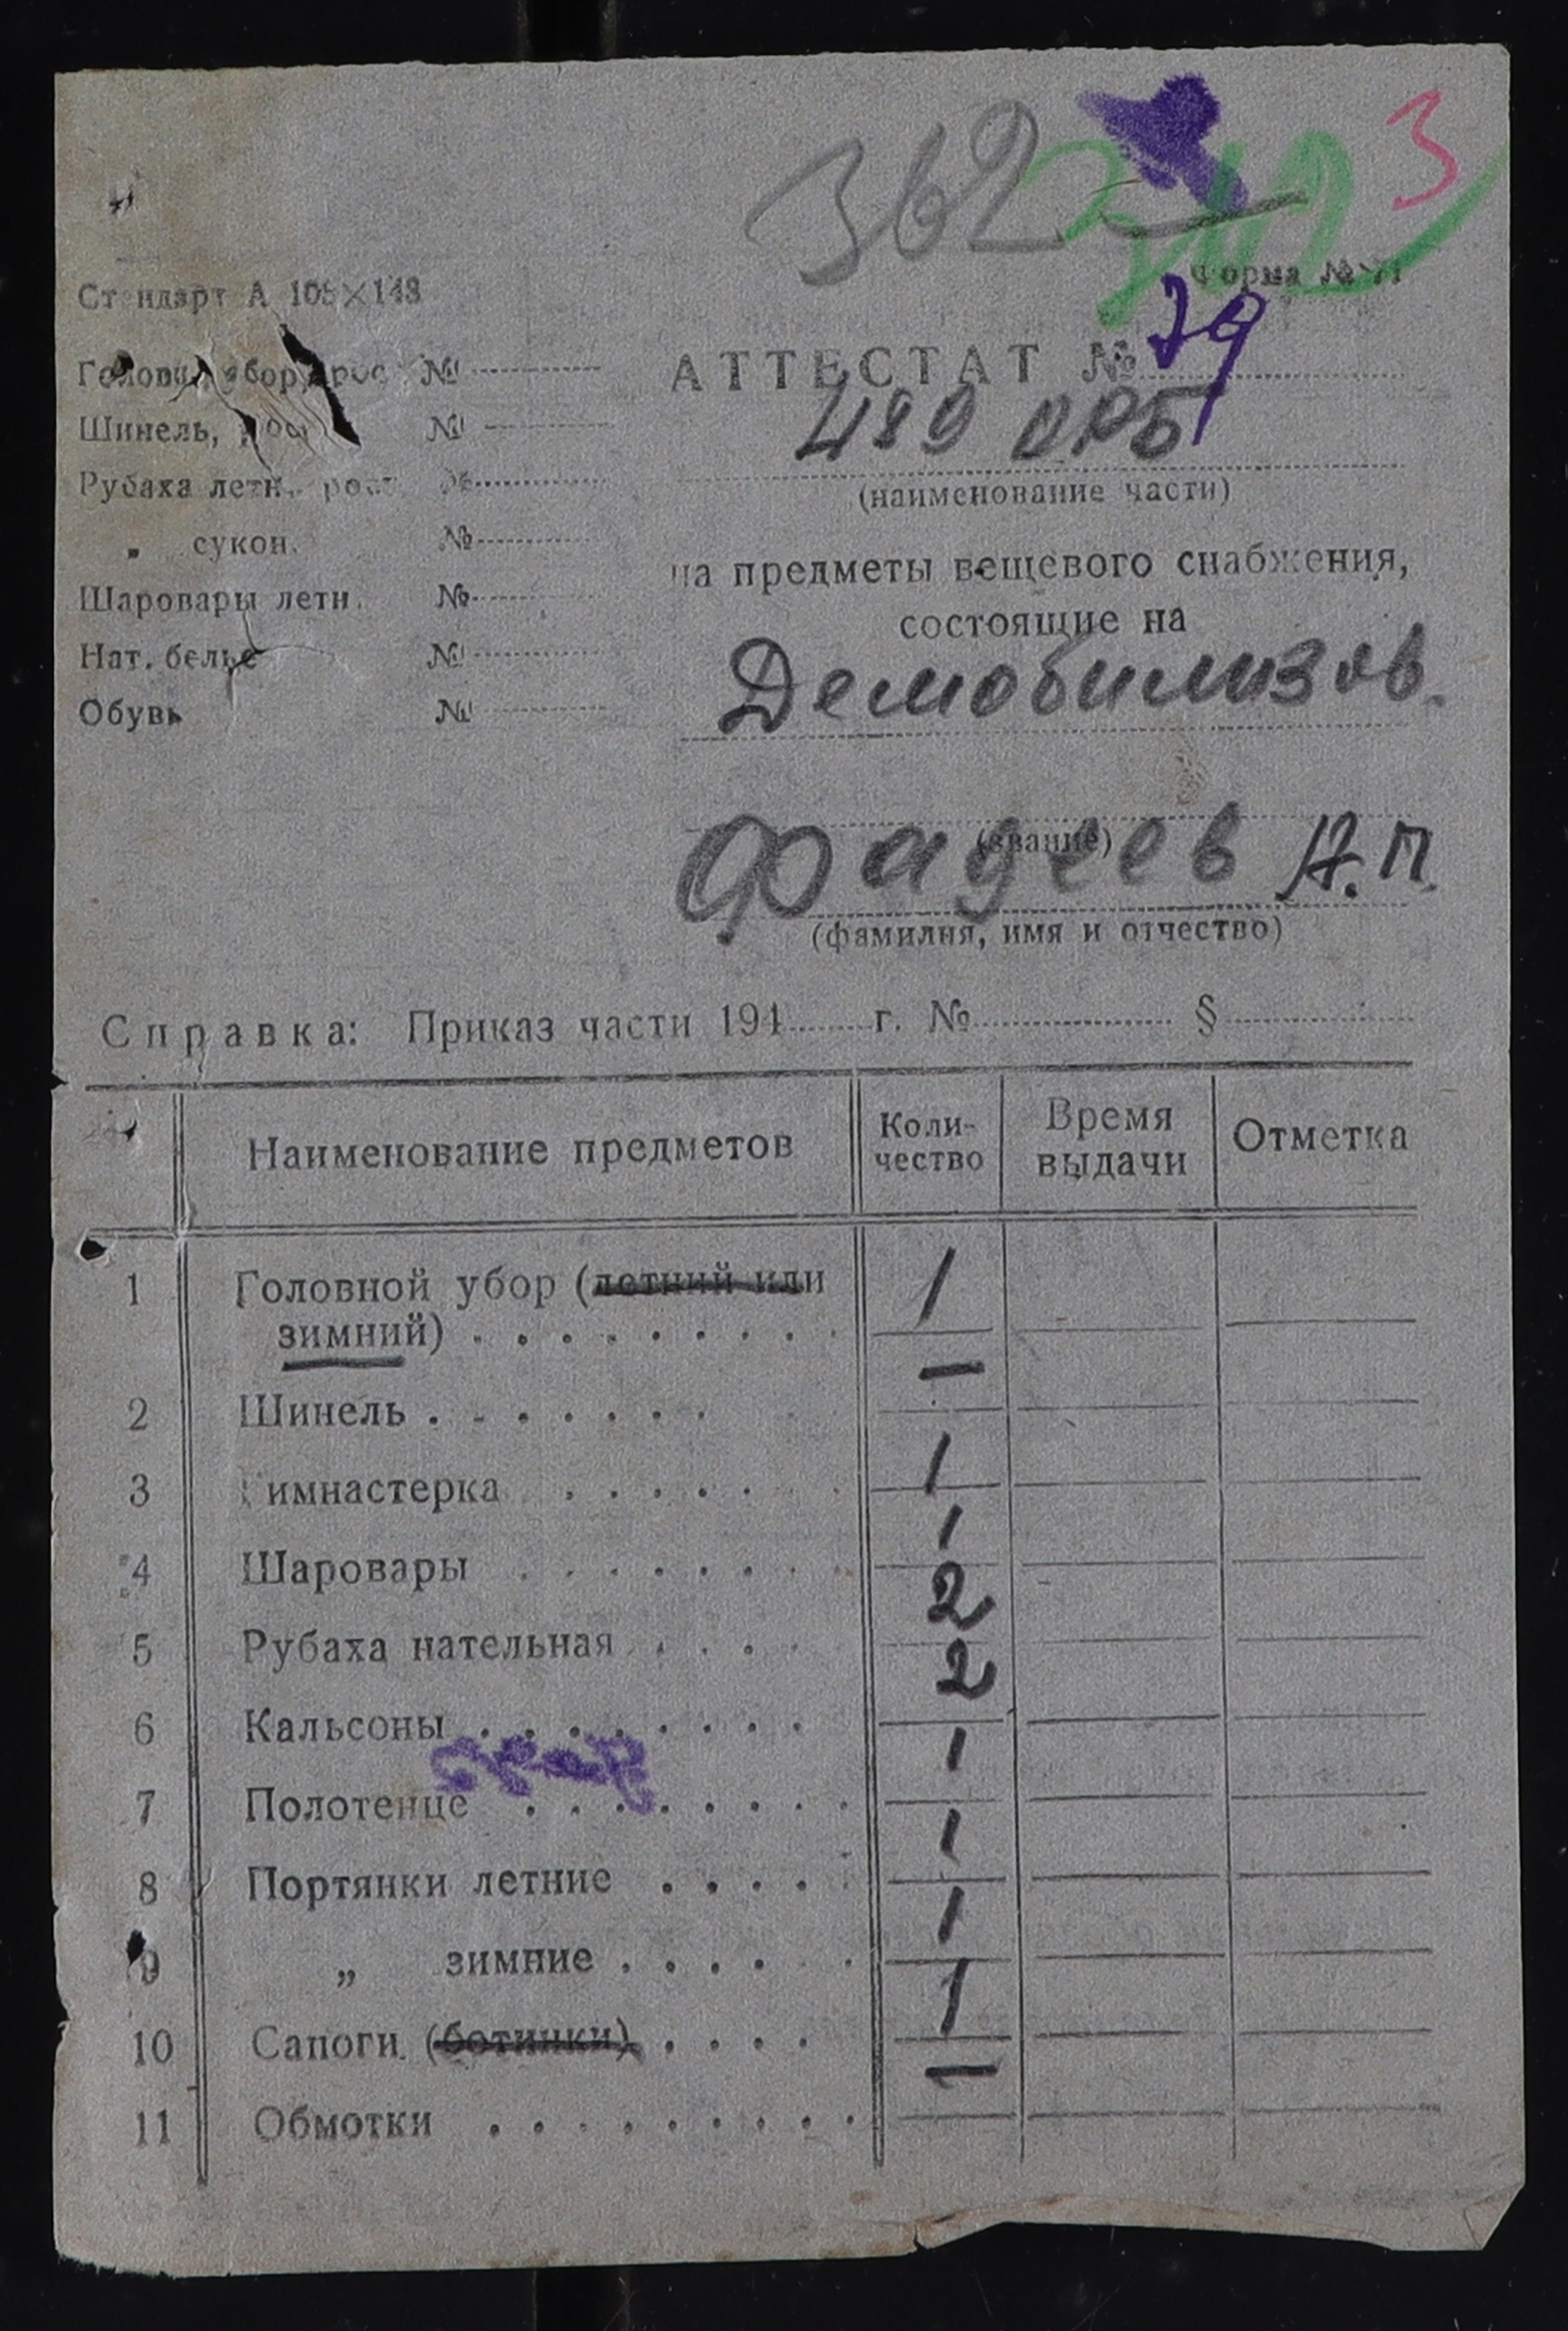 362
3
Стандарт А 105×148
Форма №
Головн. убор, рос. №
Шинель, рост №
Рубаха летн. рост №
„ сукон. №
Шаровары летн. №
Нат. белье №
Обувь №
АТТЕСТАТ № 79
489 ОРБ
(наименование части)
на предметы вещевого снабжения,
состоящие на
Демобилизов.
(звание)
Фадеев А.П.
(фамилия, имя и отчество)
Справка: Приказ части 194 г. № §
Наименование предметов Коли-чество Время выдачи Отметка
1 Головной убор (летний или
зимний) 1
2 Шинель —
3 Гимнастерка 1
4 Шаровары 1
5 Рубаха нательная 2
6 Кальсоны 2
7 Полотенце 1
8 Портянки летние 1
9 „ зимние 1
10 Сапоги (ботинки) 1
11 Обмотки —